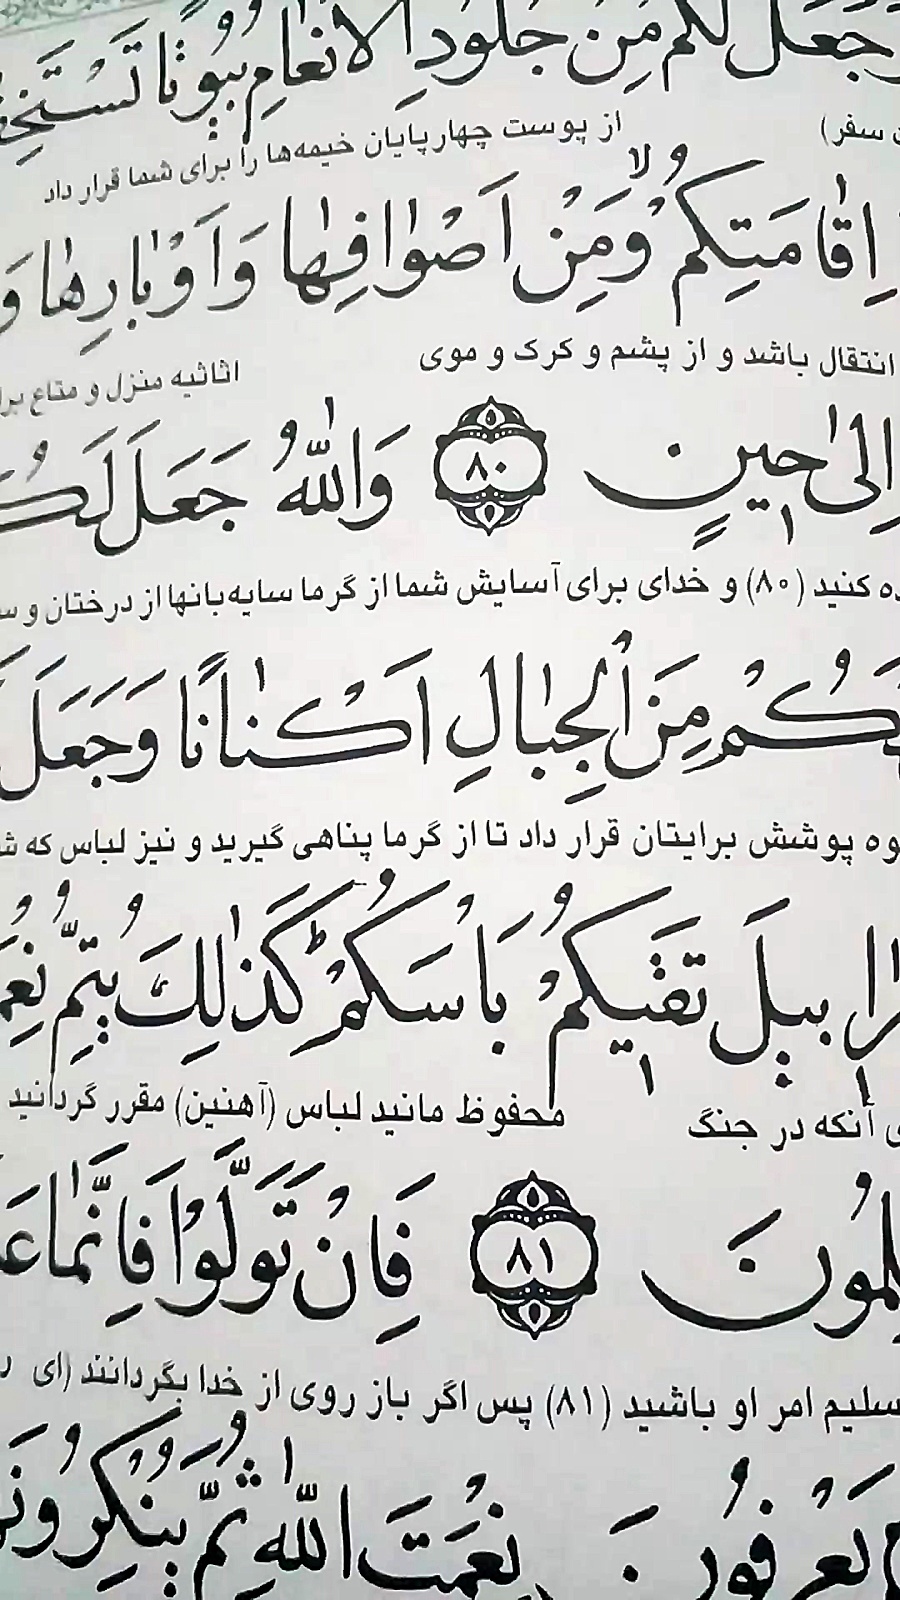 وَجَعَلَ لَكُمْ مِنْ جُلُودِ الْاَنْعَامِ بُيُوتًا
سفر) از پوست چهارپایان خیمه‌ها را برای شما قرار داد
اِقَامَتِكُمْ ۙ وَمِنْ اَصْوَافِهَا وَاَوْبَارِهَا وَ
انتقال باشد و از پشم و کرک و موی اثاثیه منزل و متاع
اِلىٰ حينٍ ﴿۸۰﴾ وَاللّٰهُ جَعَلَ
کنید (۸۰) و خدای برای آسایش شما از گرما سایه‌بانها از درختان و
مِنَ الْجِبَالِ اَكْنَانًا وَجَعَلَ
پوشش برایتان قرار داد تا از گرما پناهی گیرید و نیز لباس که
تَقيكُمْ بَاْسَكُمْ ۗ كَذٰلِكَ يُتِمُّ
آنکه در جنگ محفوظ مانید لباس (آهنین) مقرر گردانید
﴿۸۱﴾ فَاِنْ تَوَلَّوْا فَاِنَّمَا
امر او باشید (۸۱) پس اگر باز روی از خدا بگردانند (ای
نِعْمَتَ اللّٰهِ ثُمَّ